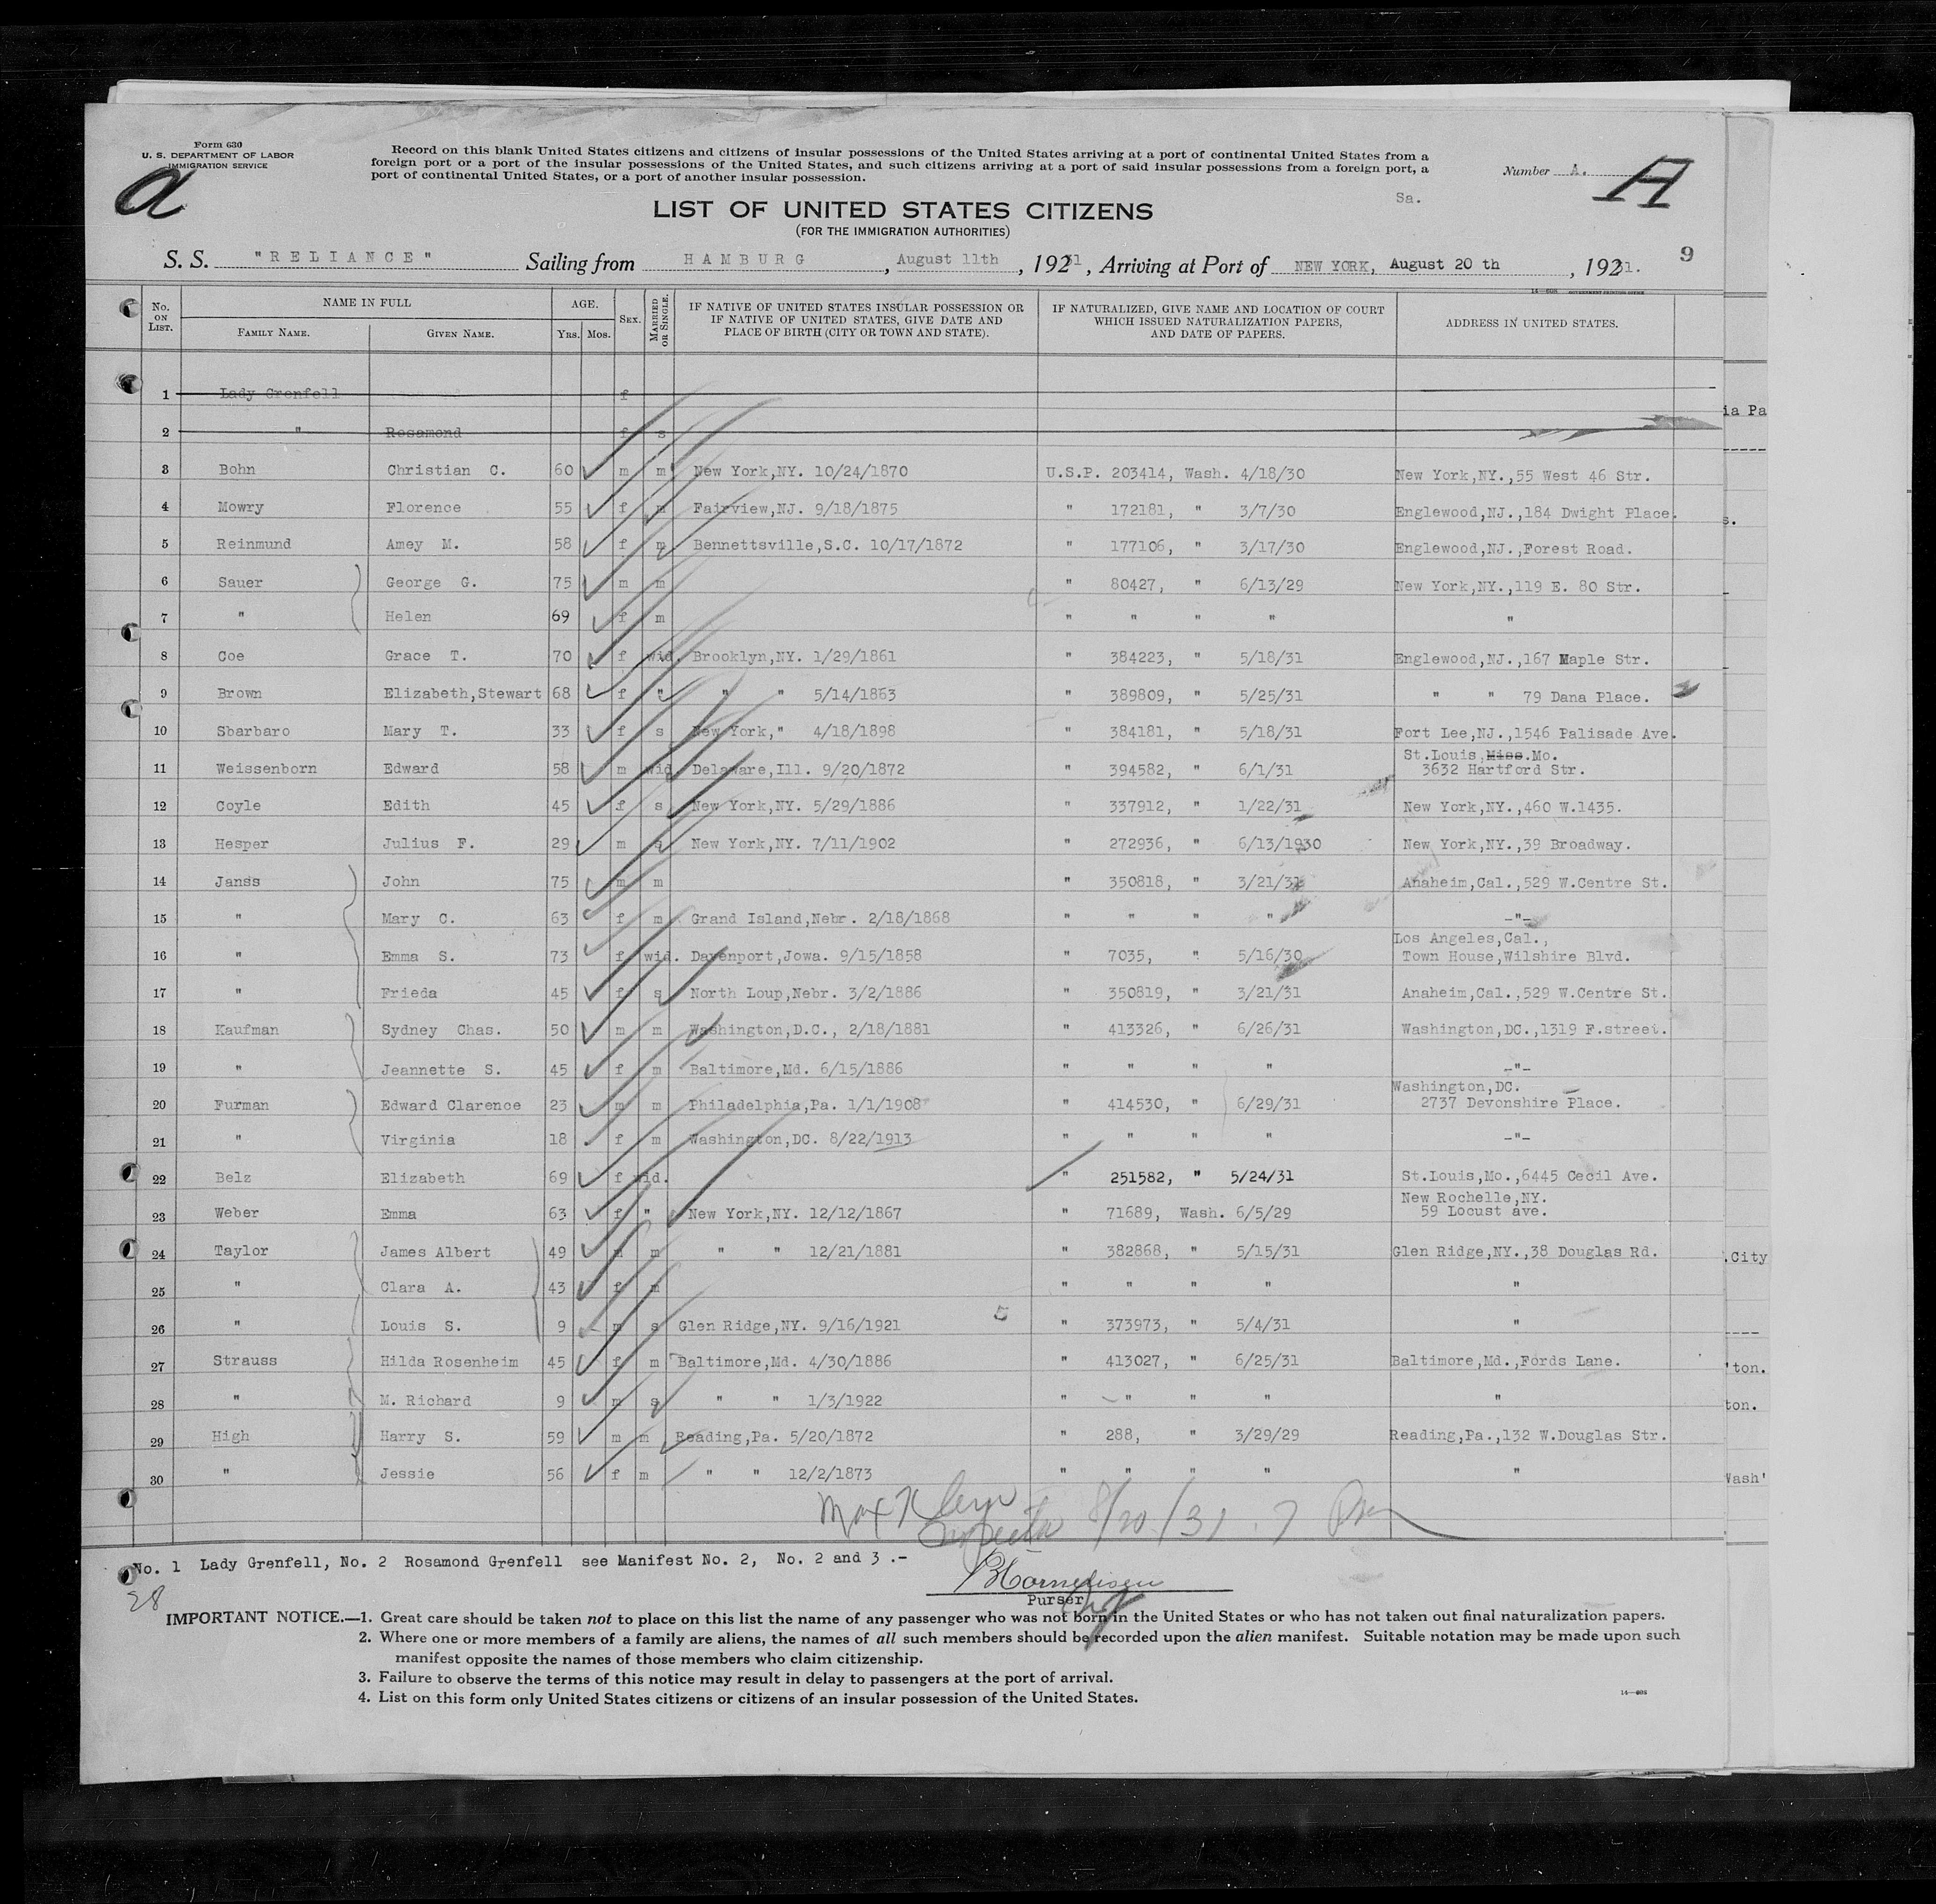 Form 630
U. S. DEPARTMENT OF LABOR
IMMIGRATION SERVICE
Record on this blank United States citizens and citizens of insular possessions of the United States arriving at a port of continental United States from a
foreign port or a port of the insular possessions of the United States, and such citizens arriving at a port of said insular possessions from a foreign port, a
port of continental United States, or a port of another insular possession.
Number A. A
a
Sa.
LIST OF UNITED STATES CITIZENS
(FOR THE IMMIGRATION AUTHORITIES)
S. S. "RELIANCE" Sailing from HAMBURG, August 11th, 19231, Arriving at Port of NEW YORK, August 20 th, 19231. 9
No. ON LIST. NAME IN FULL FAMILY NAME. GIVEN NAME. AGE. YRS. MOS. SEX. MARRIED OR SINGLE. IF NATIVE OF UNITED STATES INSULAR POSSESSION OR IF NATIVE OF UNITED STATES, GIVE DATE AND PLACE OF BIRTH (CITY OR TOWN AND STATE). IF NATURALIZED, GIVE NAME AND LOCATION OF COURT WHICH ISSUED NATURALIZATION PAPERS, AND DATE OF PAPERS. ADDRESS IN UNITED STATES.
1 Lady Grenfell f
2 " Rosamond f s
3 Bohn Christian C. 60 m m New York,NY. 10/24/1870 U.S.P. 203414, Wash. 4/18/30 New York,NY.,55 West 46 Str.
4 Mowry Florence 55 f m Fairview,NJ. 9/18/1875 " 172181, " 3/7/30 Englewood,NJ.,184 Dwight Place.
5 Reinmund Amey M. 58 f m Bennettsville,S.C. 10/17/1872 " 177106, " 3/17/30 Englewood,NJ.,Forest Road.
6 Sauer George G. 75 m m " 80427, " 6/13/29 New York,NY.,119 E. 80 Str.
7 " Helen 69 f m " " " " "
8 Coe Grace T. 70 f wid. Brooklyn,NY. 1/29/1861 " 384223, " 5/18/31 Englewood,NJ.,167 Maple Str.
9 Brown Elizabeth,Stewart 68 f " " " 5/14/1863 " 389809, " 5/25/31 " " 79 Dana Place.
10 Sbarbaro Mary T. 33 f s New York," 4/18/1898 " 384181, " 5/18/31 Fort Lee,NJ.,1546 Palisade Ave.
11 Weissenborn Edward 58 m wid Delaware,Ill. 9/20/1872 " 394582, " 6/1/31 St.Louis,Miss.Mo. 3632 Hartford Str.
12 Coyle Edith 45 f s New York,NY. 5/29/1886 " 337912, " 1/22/31 New York,NY.,460 W.1435.
13 Hesper Julius F. 29 m s New York,NY. 7/11/1902 " 272936, " 6/13/1930 New York,NY.,39 Broadway.
14 Janss John 75 m m " 350818, " 3/21/31 Anaheim,Cal.,529 W.Centre St.
15 " Mary C. 63 f m Grand Island,Nebr. 2/18/1868 " " " " -"-
16 " Emma S. 73 f wid. Davenport,Jowa. 9/15/1858 " 7035, " 5/16/30 Los Angeles,Cal., Town House,Wilshire Blvd.
17 " Frieda 45 f s North Loup,Nebr. 3/2/1886 " 350819, " 3/21/31 Anaheim,Cal.,529 W.Centre St.
18 Kaufman Sydney Chas. 50 m m Washington,D.C., 2/18/1881 " 413326, " 6/26/31 Washington,DC.,1319 F.street.
19 " Jeannette S. 45 f m Baltimore,Md. 6/15/1886 " " " " -"-
20 Furman Edward Clarence 23 m m Philadelphia,Pa. 1/1/1908 " 414530, " 6/29/31 Washington,DC. 2737 Devonshire Place.
21 " Virginia 18 f m Washington,DC. 8/22/1913 " " " " -"-
22 Belz Elizabeth 69 f wid. " 251582, " 5/24/31 St.Louis,Mo.,6445 Cecil Ave.
23 Weber Emma 63 f " New York,NY. 12/12/1867 " 71689, Wash. 6/5/29 New Rochelle,NY. 59 Locust ave.
24 Taylor James Albert 49 m m " " 12/21/1881 " 382868, " 5/15/31 Glen Ridge,NY.,38 Douglas Rd.
25 " Clara A. 43 f m " " " " "
26 " Louis S. 9 m s Glen Ridge,NY. 9/16/1921 " 373973, " 5/4/31 "
27 Strauss Hilda Rosenheim 45 f m Baltimore,Md. 4/30/1886 " 413027, " 6/25/31 Baltimore,Md.,Fords Lane.
28 " M. Richard 9 m s " " 1/3/1922 " " " " "
29 High Harry S. 59 m m Reading,Pa. 5/20/1872 " 288, " 3/29/29 Reading,Pa.,132 W.Douglas Str.
30 " Jessie 56 f m " " 12/2/1873 " " " " "
Max
8/20/31
No. 1 Lady Grenfell, No. 2 Rosamond Grenfell see Manifest No. 2, No. 2 and 3 .-
28
Purser
IMPORTANT NOTICE.—1. Great care should be taken not to place on this list the name of any passenger who was not born in the United States or who has not taken out final naturalization papers.
2. Where one or more members of a family are aliens, the names of all such members should be recorded upon the alien manifest. Suitable notation may be made upon such
manifest opposite the names of those members who claim citizenship.
3. Failure to observe the terms of this notice may result in delay to passengers at the port of arrival.
4. List on this form only United States citizens or citizens of an insular possession of the United States.